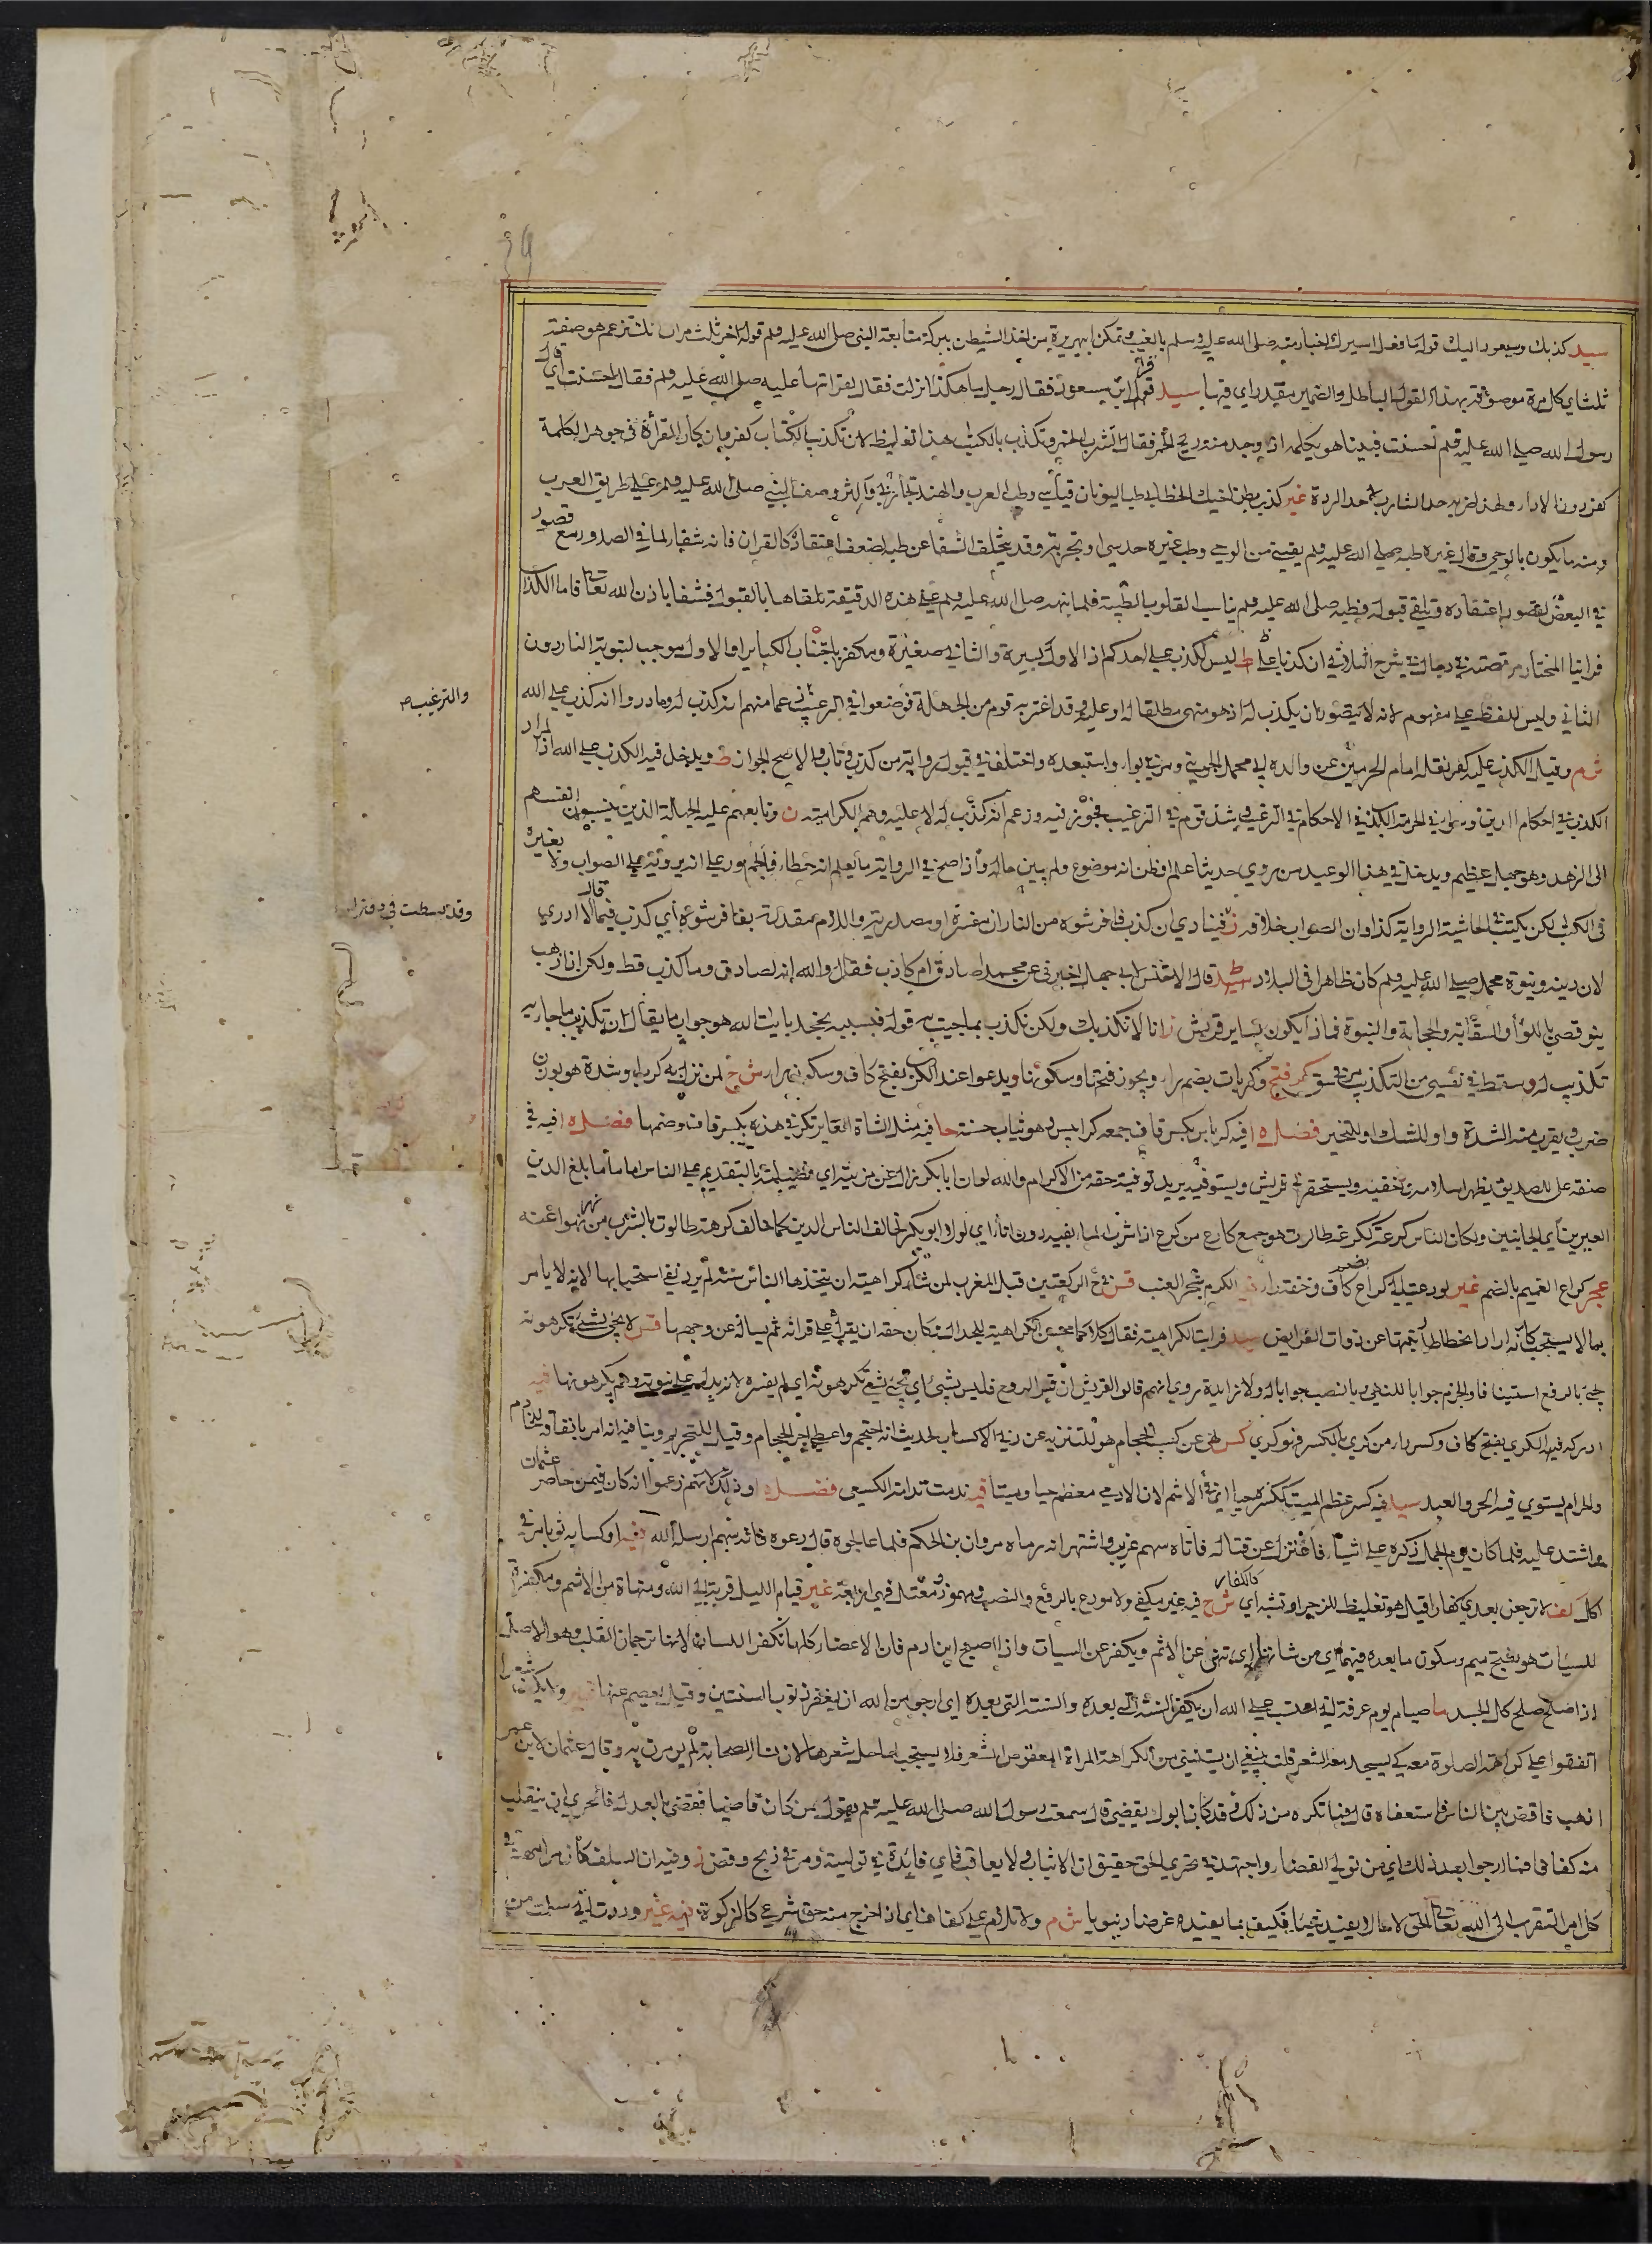 سيد كذبك وسيعود اليك قوله ما فعل اسيرك اخبار منه صلى الله عليه وسلم بالغيب وتمكن ابي هريرة من اخذ الشيطن ببركة متابعة النبي صلى الله عليه وسلم قوله اخر ثلث مرات انك تزعم هو صفة
ثلث اي كل مرة موصوفة بهذا القول الباطل والضمير مقدر اي فيها سيد قرأ ابن مسعود فقال رجل ما هكذا انزلت فقال لقرأتها عليه صلى الله عليه وسلم فقال احسنت اي قال
رسول الله صلى الله عليه وسلم احسنت فبينا هو يكلمه اذ وجد منه ريح الخمر فقال اتشرب الخمر وتكذب بالكتاب هذا تغليظ لان تكذيب الكتاب كفر وانكار القرأة في جوهر الكلمة
كفر دون الاداء ولهذا ضربه حد الشارب لا حد الردة غير كذب بطن اخيك الخطابي طب اليونان قياسي وطب العرب والهند تجاربي واكثر وصف النبي صلى الله عليه وسلم على طريق العرب
ومنه ما يكون بالوحي وقال غيره طبه صلى الله عليه وسلم يقيني من الوحي وطب غيره حدسي او تجربة وقد يتخلف الشفا عن طبه لضعف اعتقاد كالقران فانه شفاء لما في الصدور مع قصور
في البعض لقصور اعتقاده وتلقي قبوله فطبه صلى الله عليه وسلم يناسب القلوب الطيبة فلما نبهه صلى الله عليه وسلم على هذه الدقيقة تلقاها بالقبول فشفا باذن الله تعالى فاما الكذاب
فرأينا المختار مر قصته في دجال في شرح الثلاثي ان كذبا علي ط ليس ككذب على احدكم اذ الاول كبيرة والثاني صغيرة ومكفر باجتناب الكبائر او الاول موجب لتبوئة النار دون
الثاني وليس للفظ علي مفهوم لانه لا يتصور ان يكذب له اذ هو منهي مطلقا له او عليه وقد اغتر به قوم من الجهلة فوضعوا في الترغيب زعما منهم انه كذب له وما دروا انه كذب على الله
والترغيب ص
ش م وقيل الكذب عليه كفر نقله امام الحرمين عن والده ابي محمد الجويني ومر في بواء واستبعده واختلف في قبول رواية من كذب وتاب والاصح الجواز ط ويدخل فيه الكذب على الله اذ المراد
الكذب في احكام الدين وسواء في الحرمة الكذب في الاحكام في الترغيب وشذ قوم في الترغيب فجوز فيه وزعم انه كذب له لا عليه وهم الكرامية ن وتابعهم عليه الجهالة الذين ينسبون انفسهم
الى الزهد وهو جهل عظيم ويدخل في هذا الوعيد من روي حديثا علم او ظن انه موضوع ولم يبين حاله واذا صح في الرواية ما يعلم انه خطاء فالجمهور على ان يرويه على الصواب ولا يغيره
في الكتاب لكن يكتب في الحاشية الرواية كذا وان الصواب خلافه ز فينادي ان كذب فافرشوه من النار ان مفسرة او مصدرية واللام مقدرة بفا فرشوه اي كذب فيما قال لا ادري
وقد بسطت في
لان دينه ونبوة محمد صلى الله عليه وسلم كان ظاهرا في البلاد سيد قال الاخنس لابي جهل اخبرني عن محمد اصادق ام كاذب فقال والله انه لصادق وما كذب قط ولكن اذا ذهب
بنو قصي باللواء والسقاية والحجابة والنبوة فماذا يكون لساير قريش ز انا لا نكذبك ولكن نكذب بما جيت به قوله فبسببه يجحد بايت الله هو جواب ما يقال ان تكذيب ما جاء به
تكذيب له وسقط في نفسي من التكذيب مر في سق كر فتح وكربات بضم راء ويجوز فتحها وسكونها ويدعوا عند الكرب بفتح كاف وسكون راء ش ح لمن نزل به كرب او شدة هو نون
ضرب ويقرب منه الشدة واو للشك او للتخيير فضله افيه كرابيس بكسر قاف جمعه كرابيس وهو ثياب خشنة حا فيه مثل الشاة العاير تكر في هذه بكسر قاف وضمها فضله افيه في
صفة علي للصديق يظهر اسلامه وتخفيه ويستحقر في قريش ويستوفيه يريد توفية حقه من الاكرام والله لو ان ابا بكر زال عن مزيته اي فضيلته بالتقديم على الناس اماما ما بلغ الدين
العبرين اي الجانبين ولكان الناس كرعة ككرعة طالوت هو جمع كارع من كرع اذا شرب الماء بفيه دون اناء اي لولا ابو بكر لخالف الناس الدين كما خالف كرهة طالوت بالشرب من نهر نهوا عنه
عجز كراع الغميم بالضم غير لو دعيت الى كراع بضم كاف وخفة راء فيه الكرم شجر العنب قس في ح الركعتين قبل المغرب لمن شاء كراهية ان يتخذها الناس سنة لم يرد نفي استحبابها لانه لا يامر
بما لا يستحب كانه اراد انحطاط رتبتها عن ذوات الفرايض سيد فرايت الكراهية فقال كلاكما محسن الكراهية للجدال فكان حقه ان يقرأ على قرائه ثم يسأله عن وجهها قس لا يجئ بشئ تكرهونه
يجئ بالرفع استينافا والجزم جوابا للنهي وبالنصب جوابا له ولا زايدة مروي انهم قالوا لقريش ان فسر الروح فليس بنبي اي يجئ بشئ تكرهونه اي لم يفسره لانه يدل على نبوته وهم يكرهونها فيه
ادركه فيه الكري بفتح كاف وكسر راء من كري بالكسر فهو كري كس نهى عن كسب الحجام هو للتنزيه عن دنية الاكساب لحديث انه احتجم واعطى اجر الحجام وقيل للتحريم وينافيه انه امر بانفاقه للخادم
والحرام يستوي فيه الحر والعبد سيد فيه كسر عظم الميت ككسره حيا اي في الاثم لان الادمي معظم حيا وميتا فيه ندمت ندامة الكسعي فضله وذلك لانهم زعموا انه كان فيمن حاصر عثمان
واشتد عليه فلما كان يوم الجمل ذكره علي اشياء فاعتزل عن قتاله فاتاه سهم غرب واشتهر انه رماه مروان بن الحكم فلما عالجوه قال دعوه فانه سهم ارسله الله فيه او كسا به ثوبا مر في
اكل كف لا ترجعن بعدي كفارا قيل هو تغليظ للزجر او تشبه اي كالكفار ش ح فيه غير مكفي ولا مودع بالرفع والنصب ومهموز ومعتل فهي اربعة غير قيام الليل قربة الى الله ومنهاة من الاثم ومكفرة
للسيات هو بفتح ميم وسكون ما بعده فيهما اي من شانها ان تنهى عن الاثم ويكفر عن السيات واذا اصبح ابن ادم فان الاعضاء كلها تكفر اللسان لانها ترجمان القلب وهو الاصل
اذا صلح صلح كل الجسد ما صيام يوم عرفة اني احتسب على الله ان يكفر السنة التي بعده والسنة التي بعده اي ارجو من الله ان يغفر ذنوب السنتين وقيل يعصم عنها فيه ولا يكف شعرا
اتفقوا على كراهة الصلوة معه كي يسجد معه الشعر قلت ينبغي ان يستثنى من الكراهة المراة المعقوص الشعر فلا يستحب لها حل شعرها لان نساء الصحابة لم يؤمرن به وقال عثمان لابن عمر
اذهب فاقض بين الناس فاستعفاه قال فما تكره من ذلك وقد كان ابوك يقضي قال سمعت رسول الله صلى الله عليه وسلم يقول من كان قاضيا فقضى بالعدل فالحري ان ينقلب
منه كفافا فما ارجوا بعد ذلك اي من تولى القضاء واجتهد في تحري الحق حقيق ان لا يثاب ولا يعاقب فاي فائدة في توليته ومر في ذبح وقضى ز وفيه ان السلف كانوا
كل امر التقرب الى الله تعالى الحق لا يفيد شيئا فكيف بما يفيده غرضا دنيويا ش م ولا تلام على كفاف اي اذا اخرج منه حق شرعي كالزكوة فيه غير وددت اني سلمت من